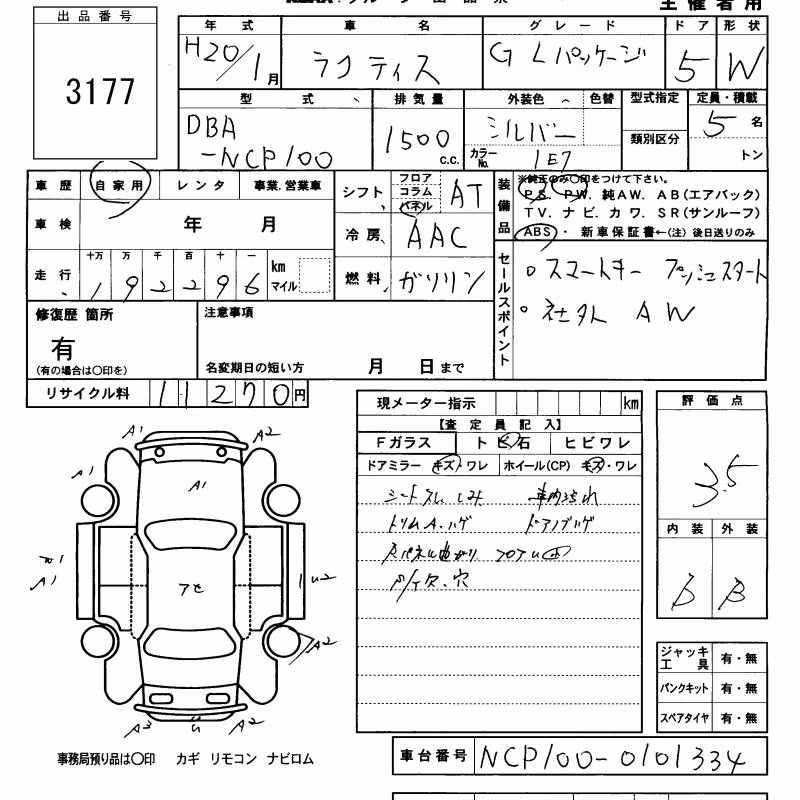 主催者用
出品番号
3177
年式 車名 グレード ドア 形状
H20/1月 ラクティス G Lパッケージ 5 W
型式 排気量 外装色 色替 型式指定 定員・積載
類別区分
DBA-NCP100 1500c.c. シルバー 5名
カラーNo. 1E7 トン
車歴 自家用 レンタ 事業、営業車
車検 年 月
走行 十万 万 千 百 十 一
192296 km マイル
シフト フロア コラム パネル AT
冷房 AAC
燃料 ガソリン
装備品
※純正のみ○印をつけて下さい。
P.S. P.W. 純AW. AB(エアバック)
TV. ナビ. カワ. SR(サンルーフ)
ABS・ 新車保証書←(注)後日送りのみ
セールスポイント
○ スマートキー プッシュスタート
○ 社外 AW
修復歴 箇所
有
(有の場合は○印を)
注意事項
名変期日の短い方 月 日まで
リサイクル料 11270円
現メーター指示 km
【査定員記入】
Fガラス トビ石 ヒビワレ
ドアミラー キズ・ワレ ホイール(CP) キズ・ワレ
シートスレ しみ 車内汚れ
トリムA.ハゲ ドアノブハゲ
穴
評価点
3.5
内装 外装
B B
ジャッキ工具 有・無
パンクキット 有・無
スペアタイヤ 有・無
A1 A2
A1 A1 A2
A1 U2
アセ
A2
A3 U A2
事務局預り品は○印 カギ リモコン ナビロム
車台番号 NCP100-0101334